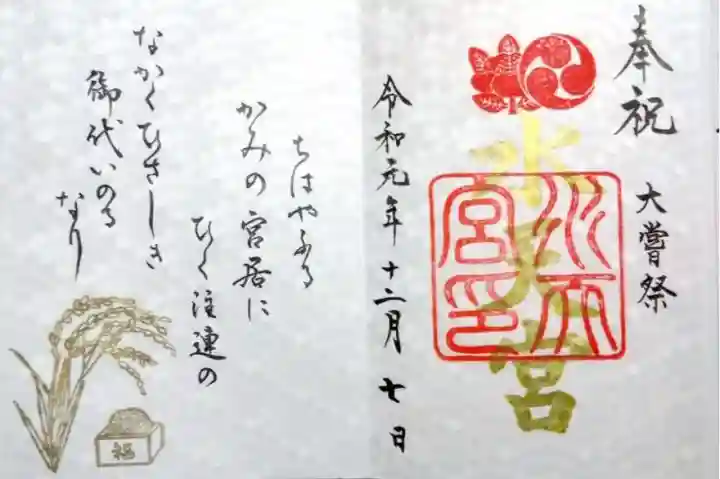 奉祝
大嘗祭
水天宮
水天宮印
令和元年十二月七日
ちはやふる
かみの宮居に
ひく注連の
なかくひさしき
御代いのる
なり
福